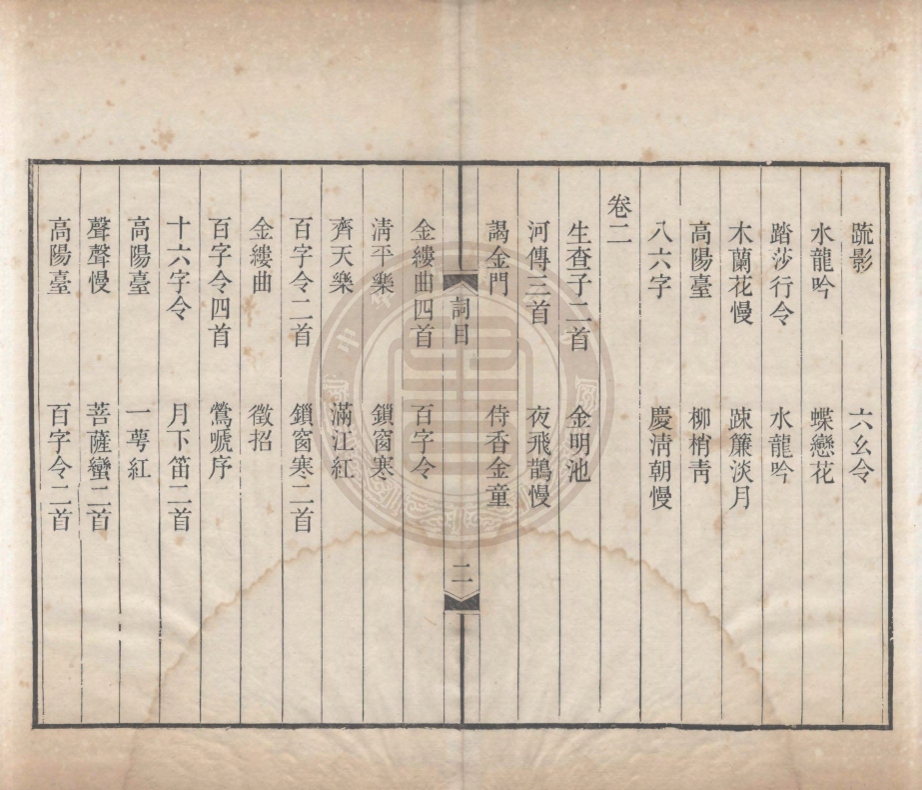 疏影　六幺令
水龍吟　蝶戀花
踏莎行令　水龍吟
木蘭花慢　疎簾淡月
高陽臺　柳梢靑
八六字　慶淸朝慢
卷二
生查子二首　金明池
河傳三首　夜飛鵲慢
謁金門　侍香金童
詞目　二
金縷曲四首　百字令
淸平樂　鎖窗寒
齊天樂　滿江紅
百字令二首　鎖窗寒二首
金縷曲　徵招
百字令四首　鶯嗁序
十六字令　月下笛二首
高陽臺　一萼紅
聲聲慢　菩薩蠻二首
高陽臺　百字令二首